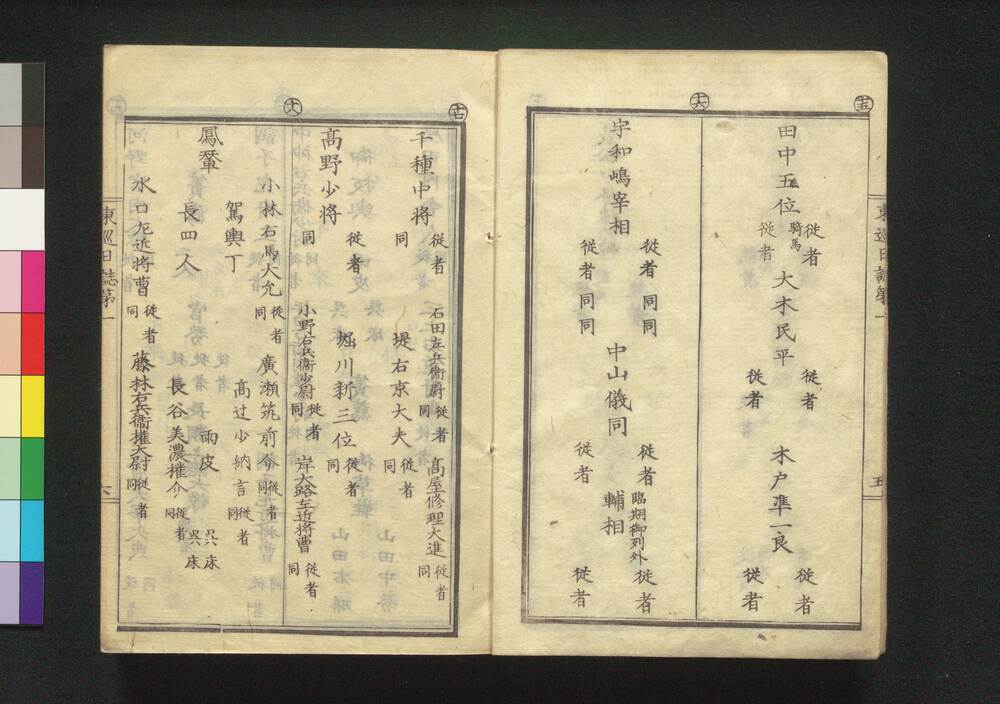 十五
田中五位
騎馬
従者
従者
大木民平
従者
従者
木戸準一良
従者
従者
十六
宇和嶋宰相
従者同同
従者同同
中山儀同
従者
従者
輔相
臨期御列外
従者
従者
東巡日誌第一
五
千種中将
従者
同
石田左兵衞尉
従者
同
髙屋修理大進
従者
同
堤右京大夫
従者
同
髙野少将
従者
同
堀川新三位
従者
同
小野右兵衞少尉
従者
同
岸大路左近将曹
従者
同
小林右馬大允
従者
同
廣瀬筑前介
従者
同
駕輿丁
髙辻少納言
従者
同
鳳輦
雨皮
呉床
呉床
長四人
長谷美濃権介
従者
同
水口左近将曹
従者
同
藤林右兵衞権大尉
従者
同
東巡日誌第一
六